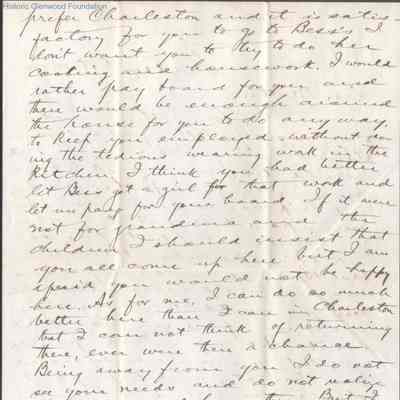 Historic Glenwood Foundation
prefer Charleston and it is satis-
factory for you to go to Bess's I
don't want you to try to do her
cooking and housework. I would
rather pay board for you and
there would be enough around
the house for you to do any way.
to keep you employed without do-
ing the tedious wearing work in the
kitchen. I think you had better
let Bess get a girl for that work and
let me pay for your board. If it were
not for grandma and the
children I should insist that
you all come up here but I am
afraid you would not be happy
here. As for me, I can do so much
better here than I can in Charleston
that I can not think of returning
there, ever were there a chance
Being away from you I do not
see your needs and do not realize
But I